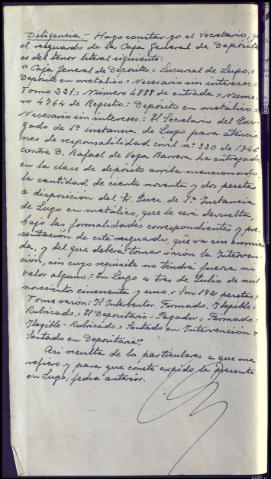 Diligencia.- Hago constar yo el Secretario, que
el resguardo de la Caja General de Depósit-
es del tenor literal siguiente:
"Caja General de Depósito: Sucursal de Lugo.=
Depósito en metálico: Necesario sin intereses.=
Tomo 331: Número 4888 de entrada.= Núme-
ro 4764 de Registro.= Depósito en metálico.=
Necesario sin intereses: El Secretario del Juz-
gado de 1ª instancia de Lugo para atencio-
nes de responsabilidad civil nº 330 de 1946
contra D. Rafael de Vega Barrera ha entregado
en la clase de depósito arriba mencionado
la cantidad de ciento noventa y dos pesetas
a disposición del Sr. Juez de 1ª Instancia
de Lugo en metálico, que le será devuelta
bajo las formalidades correspondientes y pre-
sentación de este resguardo, que va sin enmien-
da, y del que deberá tomar razón la Interven-
ción, sin cuyo requisito no tendrá fuerza ni
valor alguno.= En Lugo a tres de Julio de mil
novecientos cincuenta y uno.= Son 192 pesetas=
Tomé razón: El Interventor. Firmado. Ilegible
Rubricado: El Depositario-Pagador: Firmado.
Ilegible- Rubricado: Sentado en Intervención=
Sentado en Depositaría"
Así resulta de los particulares a que me
refiero y para que conste expido la presente
en Lugo, fecha anterior.